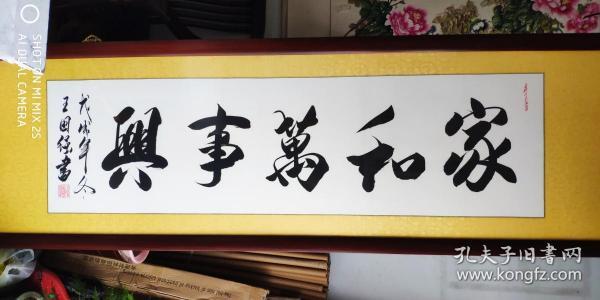 家和萬事興
戊戌年冬
王国强書
SHOT ON MI MIX 2S
AI DUAL CAMERA
孔夫子旧书网
www.kongfz.com